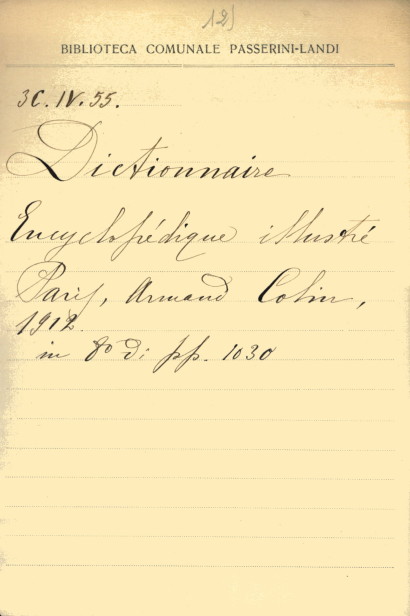 12)
BIBLIOTECA COMUNALE PASSERINI-LANDI
3C. IV. 55.
Dictionnaire
Encyclopédique illustré
Paris, Armand Colin,
1912.
in 8º di pp. 1030